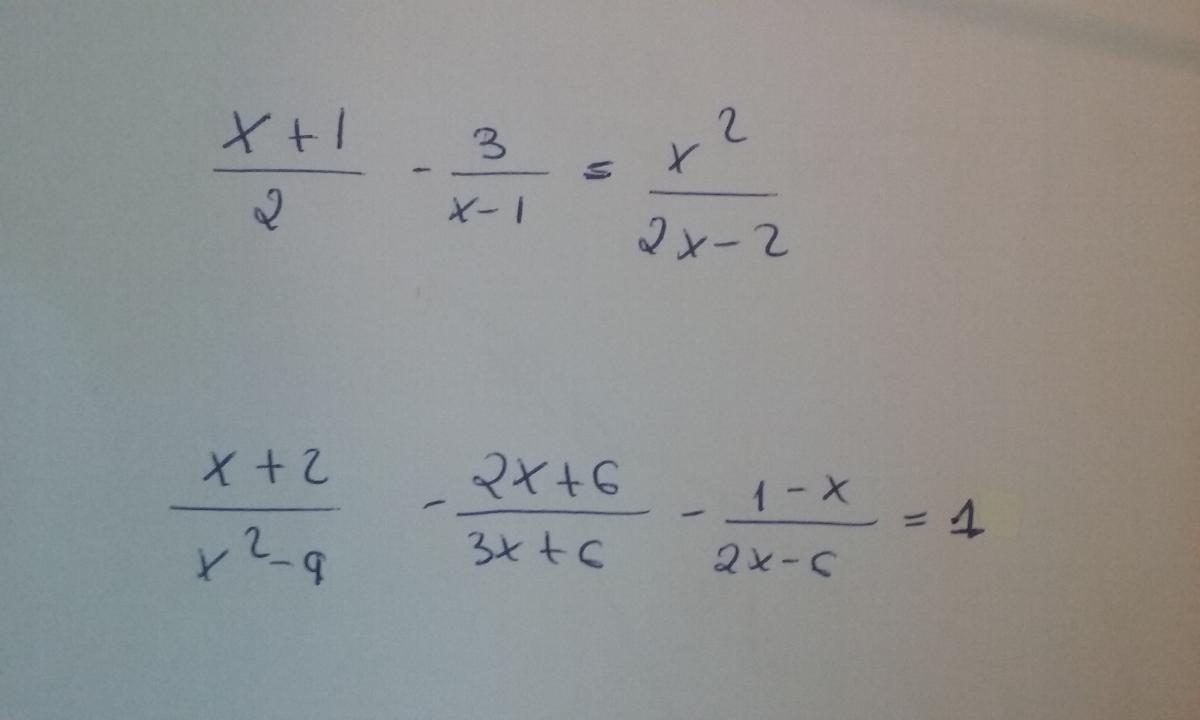 x + 1 / 2 - 3 / x - 1 = x² / 2x - 2
x + 2 / x² - 9 - 2x + 6 / 3x + 6 - 1 - x / 2x - 6 = 1